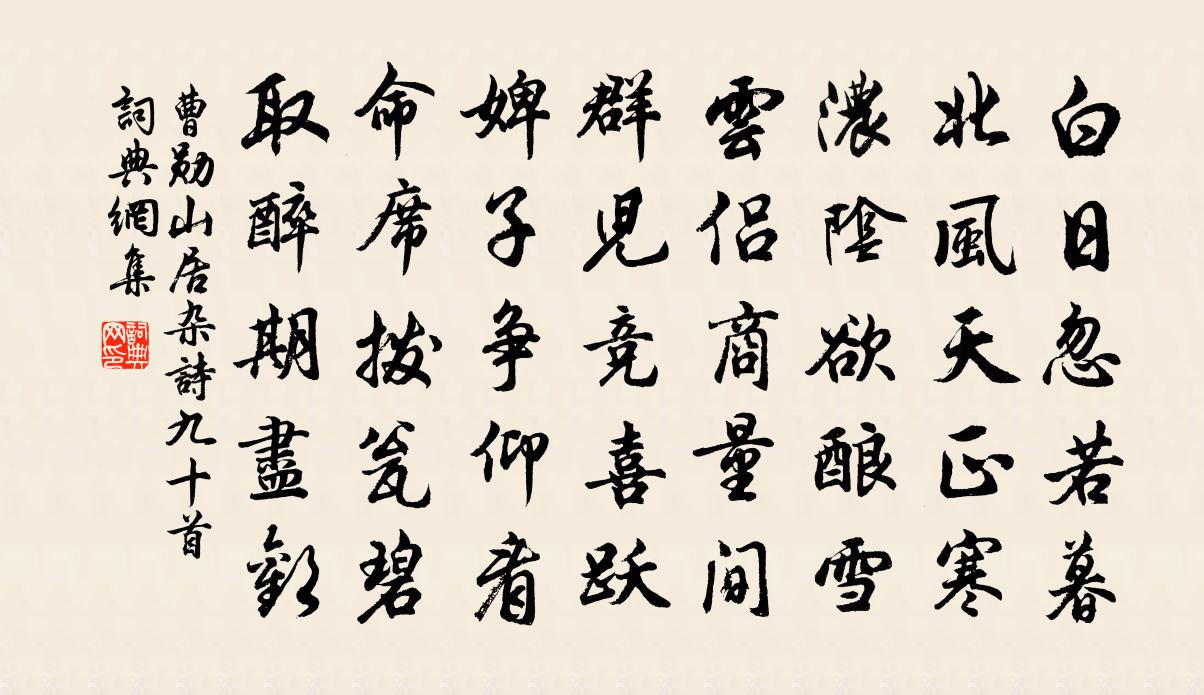 白日忽若暮
北風天正寒
濃陰欲酿雪
雲侣商量间
群児竞喜跃
婢子争仰看
命席拨瓮碧
取醉期盡歡
曹勛山居杂詩九十首
詞典網集
詞典
网印